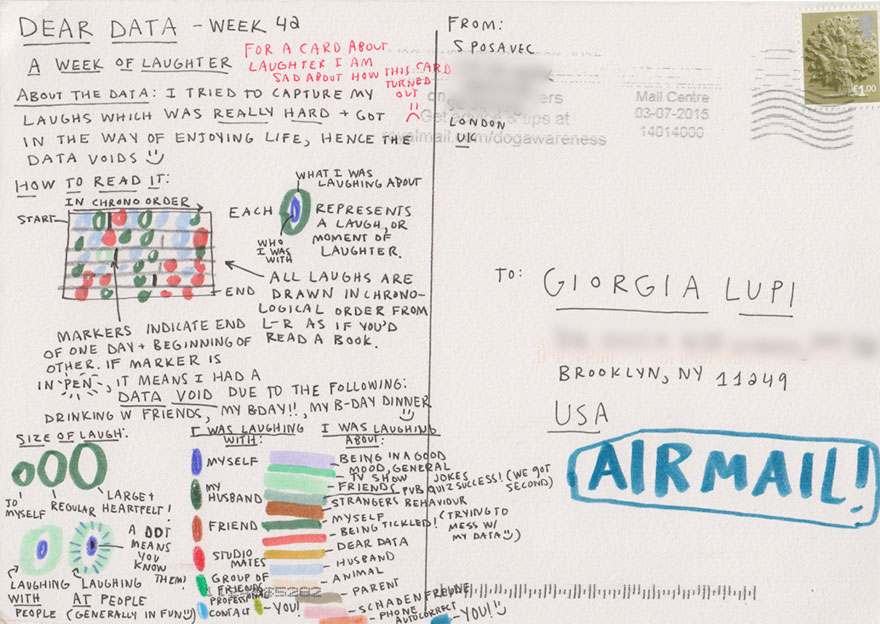 DEAR DATA - WEEK 42
A WEEK OF LAUGHTER
FOR A CARD ABOUT
LAUGHTER I AM
SAD ABOUT HOW THIS CARD
TURNED
OUT
ABOUT THE DATA: I TRIED TO CAPTURE MY
LAUGHS WHICH WAS REALLY HARD + GOT
IN THE WAY OF ENJOYING LIFE, HENCE THE
DATA VOIDS
HOW TO READ IT:
IN CHRONO ORDER
START
END
WHAT I WAS
LAUGHING ABOUT
EACH
REPRESENTS
A LAUGH, OR
MOMENT OF
LAUGHTER.
WHO
I WAS
WITH
ALL LAUGHS ARE
DRAWN IN CHRONO-
LOGICAL ORDER FROM
L-R AS IF YOU'D
READ A BOOK.
MARKERS INDICATE END
OF ONE DAY + BEGINNING OF
OTHER. IF MARKER IS
IN "PEN", IT MEANS I HAD A
DATA VOID DUE TO THE FOLLOWING:
DRINKING W FRIENDS, MY BDAY!!, MY B-DAY DINNER
SIZE OF LAUGH:
TO
MYSELF
REGULAR
LARGE +
HEARTFELT!
A DOT
MEANS
YOU
KNOW
THEM)
LAUGHING
WITH
PEOPLE
LAUGHING
AT PEOPLE
(GENERALLY IN FUN)
I WAS LAUGHING
WITH:
MYSELF
MY
HUSBAND
FRIEND
STUDIO
MATES
GROUP OF
FRIENDS
PROFESSIONAL
CONTACT
YOU!
I WAS LAUGHING
ABOUT:
BEING IN A GOOD
MOOD, GENERAL
JOKES
TV SHOW
FRIENDS
PUB QUIZ SUCCESS! (WE GOT
SECOND)
STRANGERS BEHAVIOUR
MYSELF
BEING TICKLED! (TRYING TO
MESS W/
MY DATA)
DEAR DATA
HUSBAND
ANIMAL
PARENT
SCHADENFREUDE
PHONE
AUTOCORRECT
YOU!
FROM:
S POSAVEC
LONDON
UK
£1.00
Mail Centre
03-07-2015
14014000
ups at
royalmail.com/dogawareness
TO:
GIORGIA LUPI
BROOKLYN, NY 11249
USA
AIRMAIL!